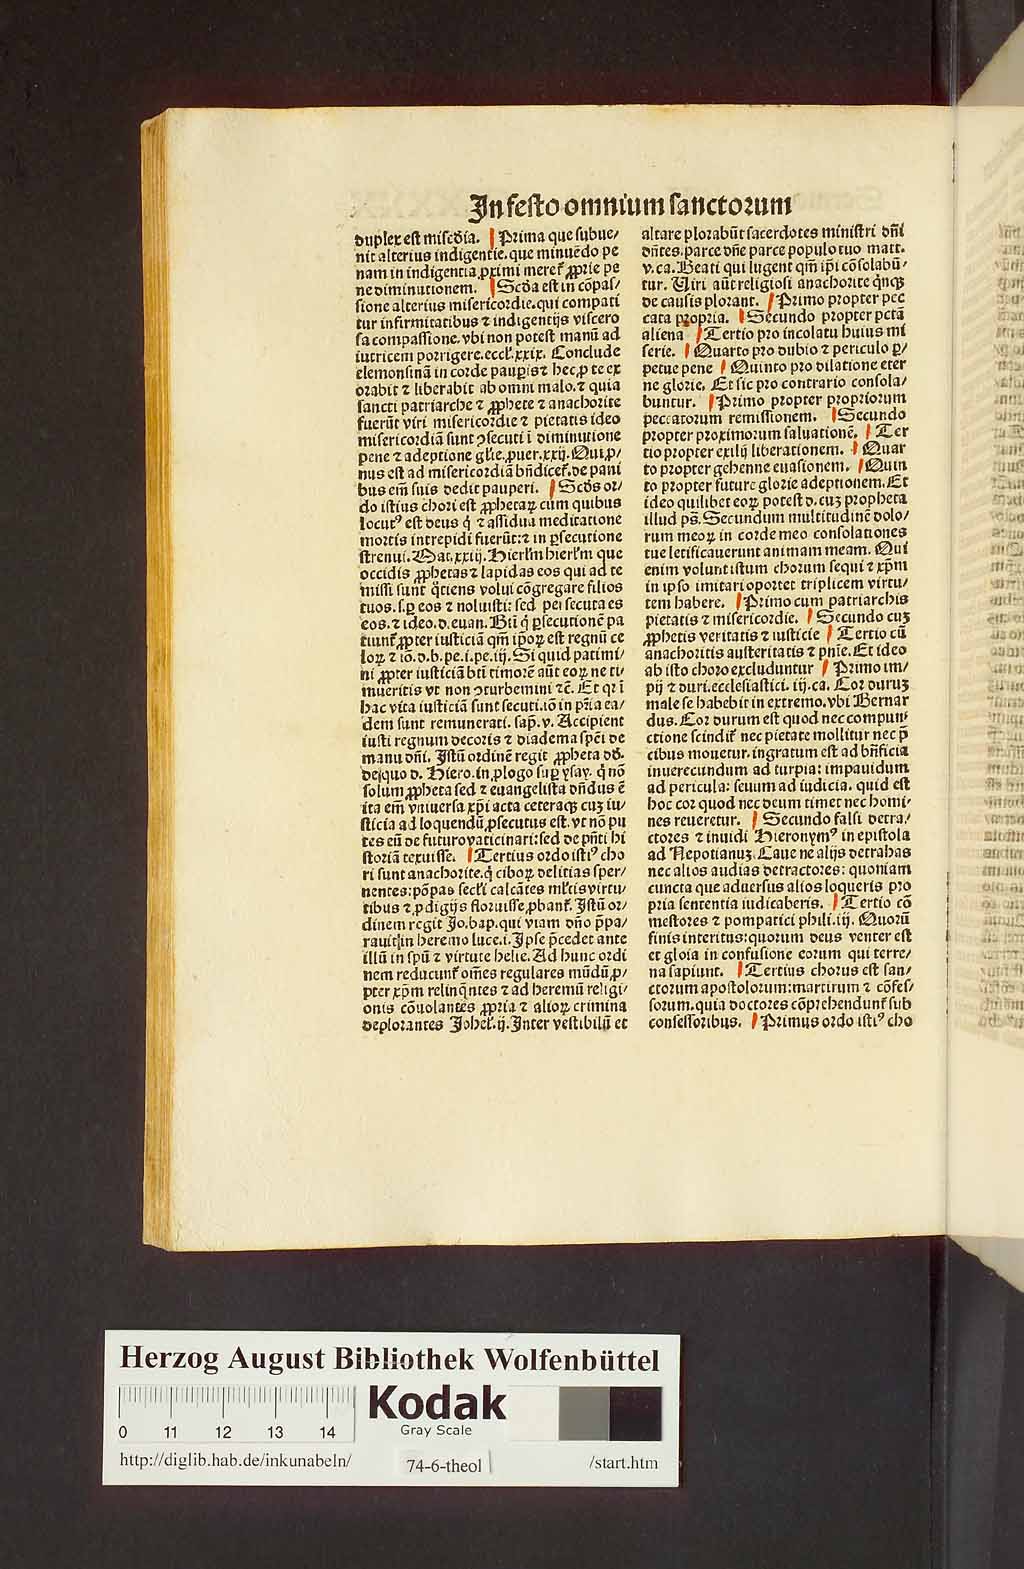 In festo omnium sanctorum
duplex est misc̄dia. Prima que subue/
nit alterius indigentie. que minuēdo pe
nam in indigentia ꝓximi meret᷑ ꝓprie pe
ne diminutionem. Scd̄a est in cōpas/
sione alterius misericordie. qui compati
tur infirmitatibus ⁊ indigentijs viscero
sa compassione. vbi non potest manū ad
iutricem porrigere. eccl̄. xxix. Conclude
elemosinā in corde pauꝑis ⁊ hec ꝓ te ex
orabit ⁊ liberabit ab omni malo. ⁊ quia
sancti patriarche ⁊ ꝓphete ⁊ anachorite
fuerūt viri misericordie ⁊ pietatis ideo
misericordiā sunt ꝯsecuti ī diminutione
pene ⁊ adeptione gl̄ie. ꝓuer. xxij. Qui ꝓ/
nus est ad misericordiā bn̄dicet᷑. de pani
bus em̄ suis dedit pauperi. Scd̄s or/
do istius chori est ꝓphetaꝝ cum quibus
locutꝰ est deus q̇ ⁊ assidua meditatione
mortis intrepidi fuerūt: ⁊ in ꝑsecutione
strenui. Mat. xxiij. Hierl̄m hierl̄m que
occidis ꝓphetas ⁊ lapidas eos qui ad te
missi sunt q̇tiens volui cōgregare filios
tuos. s. ꝑ eos ⁊ noluisti: sed persecuta es
eos. ⁊ ideo. d. euan. Bt̄i q̇ ꝑsecutionē pa
tiunt᷑ ꝓpter iusticiā qm̄ ip̄oꝝ est regnū ce
loꝝ ⁊ iō. d. b. pe. i. pe. iij. Si quid patimi/
ni ꝓpter iusticiā bt̄i timorē aūt eoꝝ ne ti/
mueritis vt non ꝯturbemini ⁊c̄. Et qꝛ ī
hac vita iusticiā sunt secuti. iō in pr̄ia ea/
dem sunt remunerati. sap̄. v. Accipient
iusti regnum decoris ⁊ diadema spēi de
manu dn̄i. Istū ordinē regit ꝓpheta dd̄.
de quo d. Hiero. in ꝓlogo suꝑ ysay. q̇ nō
solum ꝓpheta sed ⁊ euangelista dn̄dus ē
ita em̄ vniuersa xp̄i acta ceteraqꝫ cuꝫ iu/
sticia ad loquendū ꝓsecutus est. vt nō pu
tes eū de futuro vaticinari: sed de pn̄ti hi
storiā texuisse. Tertius ordo istiꝰ cho
ri sunt anachorite. q̇ ciboꝝ delitias sper/
nentes: pōpas secl̄i calcātes ml̄tis virtu/
tibus ⁊ ꝓdigijs floruisse ꝓbant᷑. Istū or/
dinem regit Jo. bap. qui viam dn̄o p̄pa/
rauit in heremo luce. i. Ipse p̄cedet ante
illū in spū ⁊ virtute helie. Ad hunc ordi
nem reducunt᷑ om̄es regulares mūdū ꝓ/
pter xp̄m relinq̄ntes ⁊ ad heremū religi/
onis cōuolantes ꝓpria ⁊ alioꝝ crimina
deplorantes Johel̄. ij. Inter vestibilū et
altare plorabūt sacerdotes ministri dn̄i
dn̄tes. parce dn̄e parce populo tuo matt.
v. ca. Beati qui lugent qm̄ ip̄i cōsolabū/
tur. Uiri aūt religiosi anachorite q̇nqꝫ
de causis plorant. Primo propter pec
cata propria. Secundo propter pctā
aliena Tertio pro incolatu huius mi
serie. Quarto pro dubio ⁊ periculo ꝑ/
petue pene Quinto pro dilatione eter
ne glorie. Et sic pro contrario consola/
buntur. Primo propter propriorum
peccatorum remissionem. Secundo
propter proximorum saluationē. Ter
tio propter exilij liberationem. Quar
to propter gehenne euasionem. Quin
to propter future glorie adeptionem. Et
ideo quilibet eoꝝ potest d. cuꝫ propheta
illud ps̄. Secundum multitudinē dolo/
rum meoꝝ in corde meo consolationes
tue letificauerunt animam meam. Qui
enim volunt istum chorum sequi ⁊ xp̄m
in ipso imitari oportet triplicem virtu/
tem habere. Primo cum patriarchis
pietatis ⁊ misericordie. Secundo cuꝫ
ꝓphetis veritatis ⁊ iusticie Tertio cū
anachoritis austeritatis ⁊ pn̄ie. Et ideo
ab isto choro excluduntur Primo im/
pij ⁊ duri. ecclesiastici. iij. ca. Cor duruꝫ
male se habebit in extremo. vbi Bernar
dus. Cor durum est quod nec compun/
ctione scindit᷑ nec pietate mollitur nec p̄
cibus mouetur. ingratum est ad bn̄ficia
inuerecundum ad turpia: impauidum
ad pericula: seuum ad iudicia. quid est
hoc cor quod nec deum timet nec homi/
nes reueretur. Secundo falsi detra/
ctores ⁊ inuidi Hieronymꝰ in epistola
ad Nepotianuꝫ. Caue ne alijs detrahas
nec alios audias detractores: quoniam
cuncta que aduersus alios loqueris pro
pria sententia iudicaberis. Tertio cō
mestores ⁊ pompatici phili. iij. Quorū
finis interitus: quorum deus venter est
et gloia in confusione eorum qui terre/
na sapiunt. Tertius chorus est san/
ctorum apostolorum: martirum ⁊ cōfes/
sorum. quia doctores cōprehendunt᷑ sub
confessoribus. Primus ordo istiꝰ cho
Herzog August Bibliothek Wolfenbüttel
0 11 12 13 14
Kodak
Gray Scale
http://diglib.hab.de/inkunabeln/ 74-6-theol /start.htm